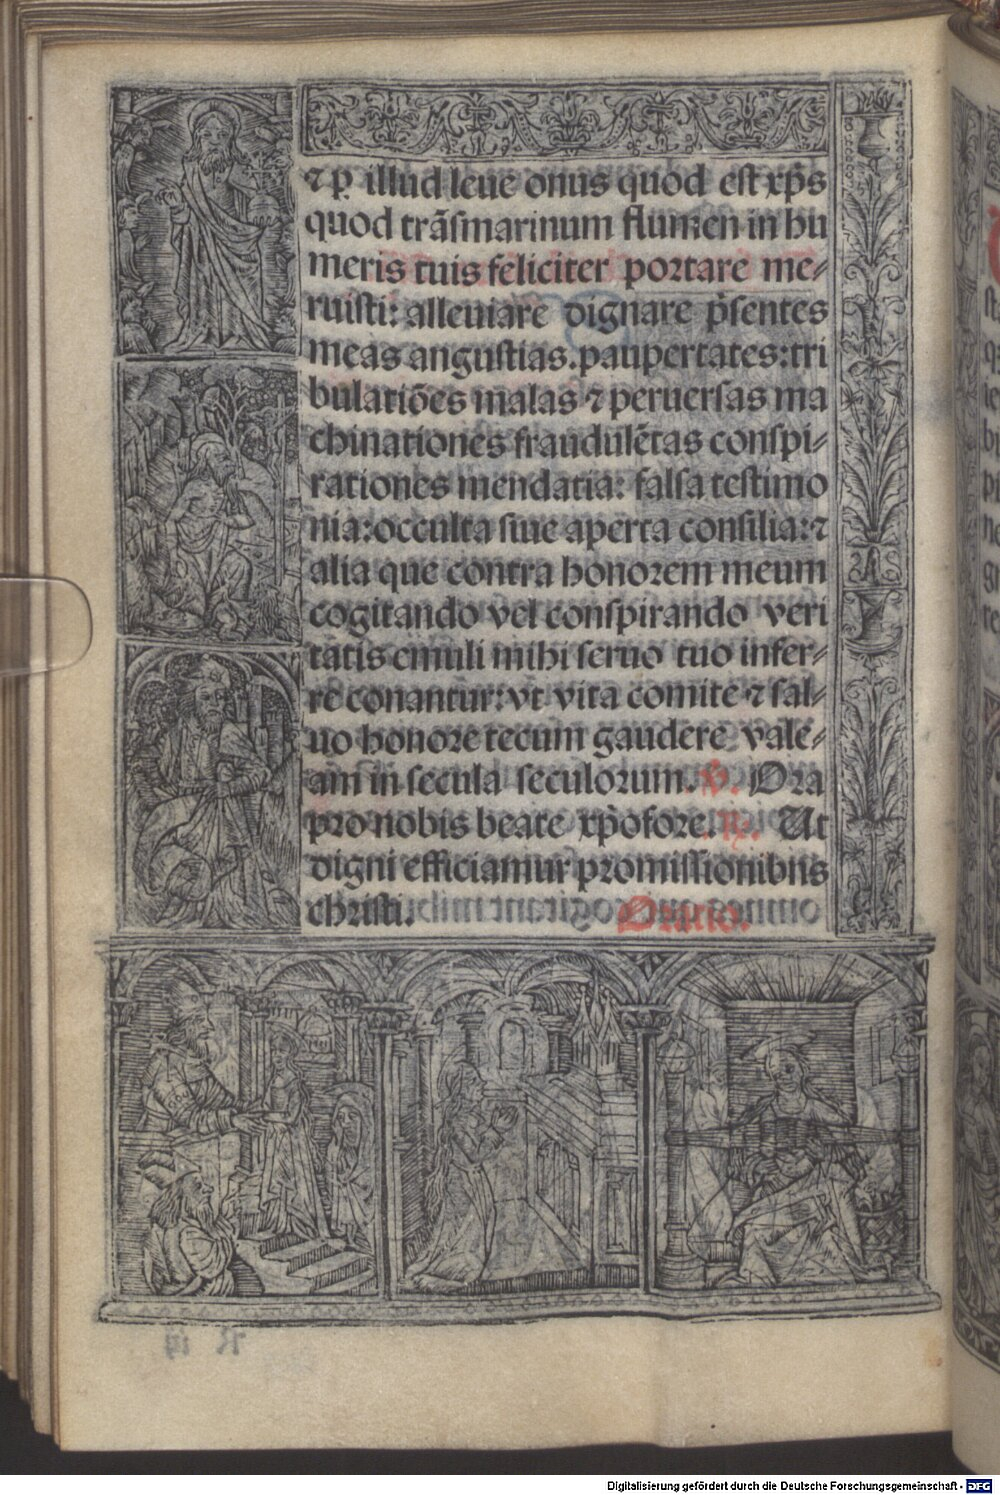 ⁊ ꝑ illud leue onus quod est xp̄s
quod trãsmarinum flumen in hu
meris tuis feliciter portare me⸗
ruisti: alleuiare dignare p̄sentes
meas angustias. paupertates: tri
bulatiões malas ⁊ peruersas ma
chinationes fraudulẽtas conspi⸗
rationes mendatia: falsa testimo
nia: occulta siue aperta consilia: ⁊
alia que contra honorem meum
cogitando vel conspirando veri
tatis emuli mihi seruo tuo infer⸗
re conantur: vt vita comite ⁊ sal⸗
uo honore tecum gaudere vale⸗
am in secula seculorum. ℣. Ora
pro nobis beate xp̄ofore. ℟. Ut
digni efficiamur promissionibus
christi. Oratio.
Digitalisierung gefördert durch die Deutsche Forschungsgemeinschaft - DFG